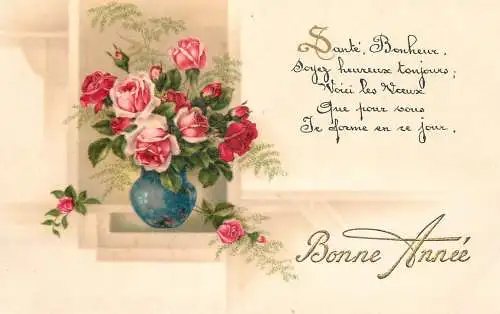 Santé, Bonheur,
Soyez heureux toujours;
Voici les Voeux
Que pour vous
Je forme en ce jour.
Bonne Année